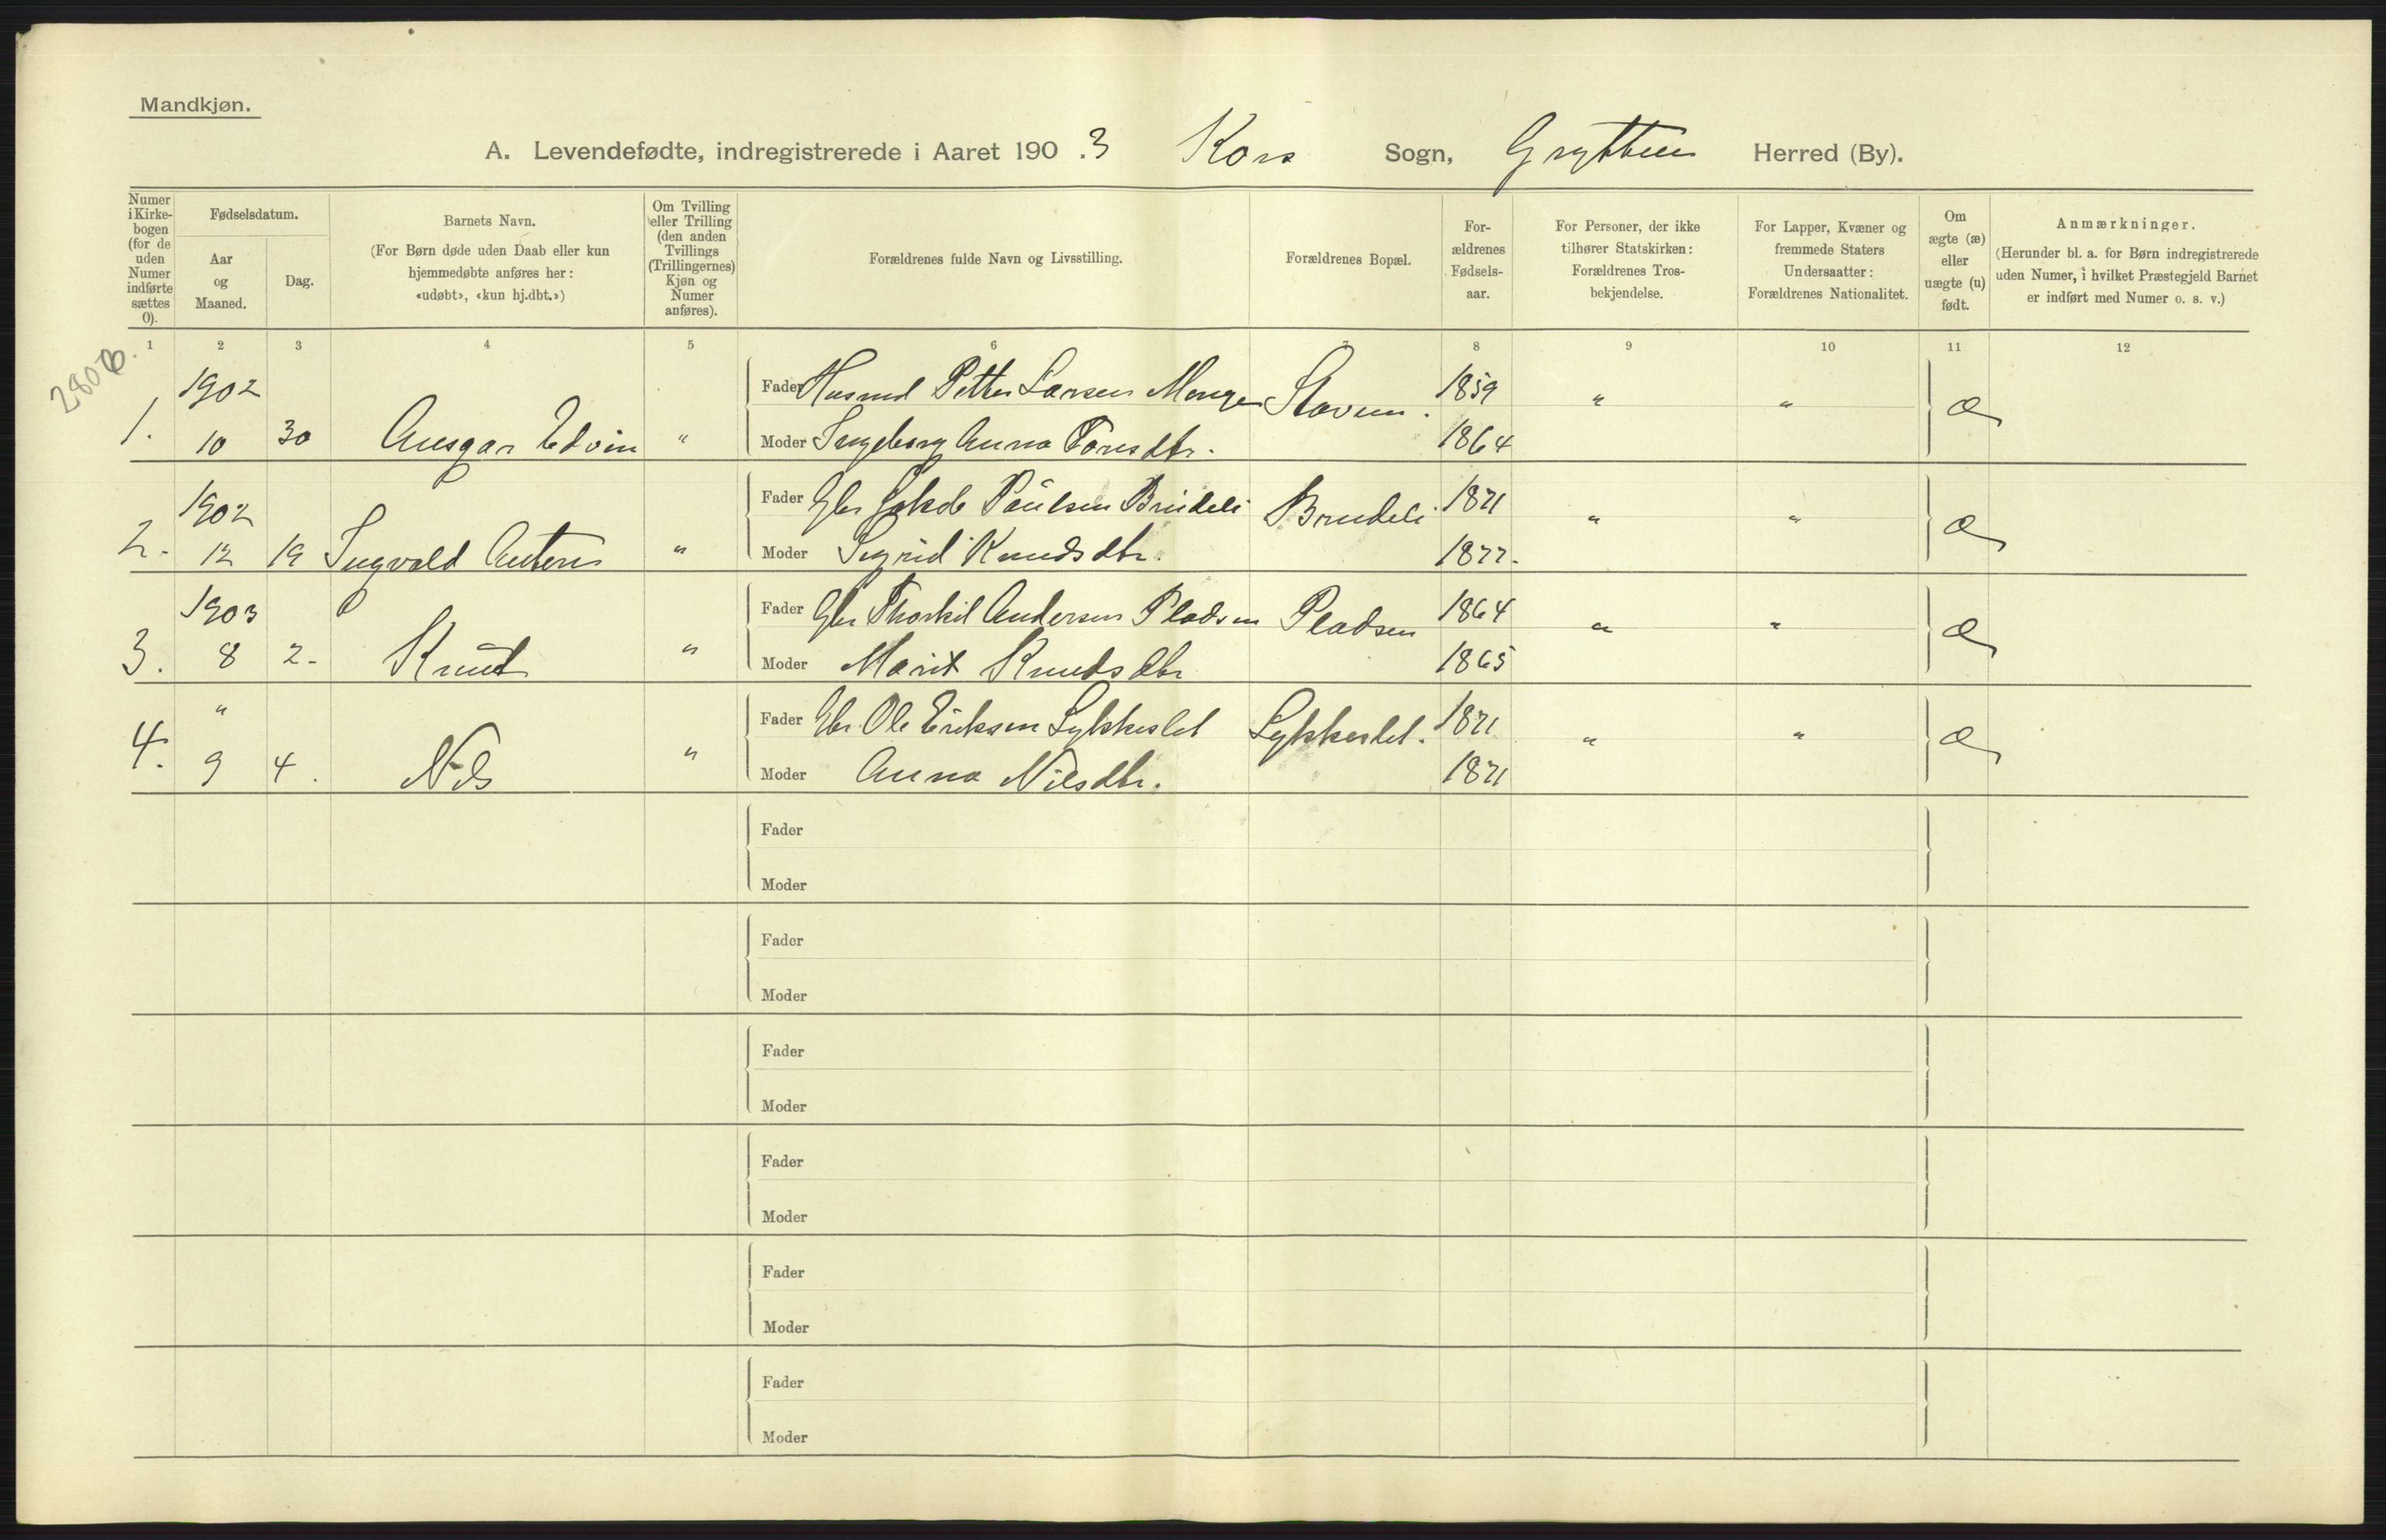 Mandkjøn.
A. Levendefødte, indregistrerede i Aaret 190.3 Kors Sogn, Grytten Herred (By).
Numer i Kirkebogen (for de uden Numer indførte sættes 0).
Fødselsdatum.
Aar og Maaned.
Dag.
Barnets Navn.
(For Børn døde uden Daab eller kun
hjemmedøbte anføres her:
«udøbt», «kun hj.dbt.»)
Om Tvilling
eller Trilling
(den anden
Tvillings
(Trillingernes)
Kjøn og
Numer
anføres).
Forældrenes fulde Navn og Livsstilling.
Forældrenes Bopæl.
For-
ældrenes
Fødsels-
aar.
For Personer, der ikke
tilhører Statskirken:
Forældrenes Tros-
bekjendelse.
For Lapper, Kvæner og
fremmede Staters
Undersaatter:
Forældrenes Nationalitet.
Om
ægte (æ)
eller
uægte (u)
født.
Anmærkninger.
(Herunder bl. a. for Børn indregistrerede
uden Numer, i hvilket Præstegjeld Barnet
er indført med Numer o. s. v.)
1 2 3 4 5 6 7 8 9 10 11 12
1902 Fader Husmd Petter Larsen Monge Stavem. 1859 " " æ
1. 10 30 Ansgar Edvin " Moder Ingeborg Anna Toresdtr. 1864
1902 Fader Gbr Jakob Paulsen Brudeli Brudeli 1871 " " æ
2. 12 19 Ingvald Anton " Moder Sigrid Knudsdtr. 1877.
1903 Fader Gbr Thorkil Andersen Pladsen Pladsen 1864 " " æ
3. 8 2. Knud " Moder Marit Knudsdtr 1865
" Fader Gbr Ole Eriksen Lykkeslet Lykkeslet. 1871 " " æ
4. 9 4. Nils " Moder Anna Nilsdtr. 1871
Fader
Moder
Fader
Moder
Fader
Moder
Fader
Moder
Fader
Moder
Fader
Moder